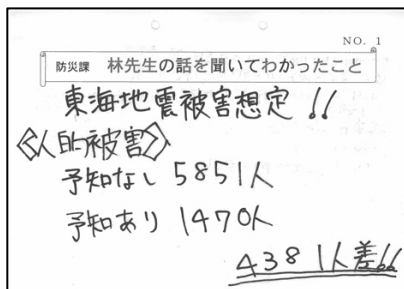 NO. 1
防災課 林先生の話を聞いてわかったこと
東海地震被害想定!!
《人的被害》
予知なし 5851人
予知あり 1470人
4381人差!!